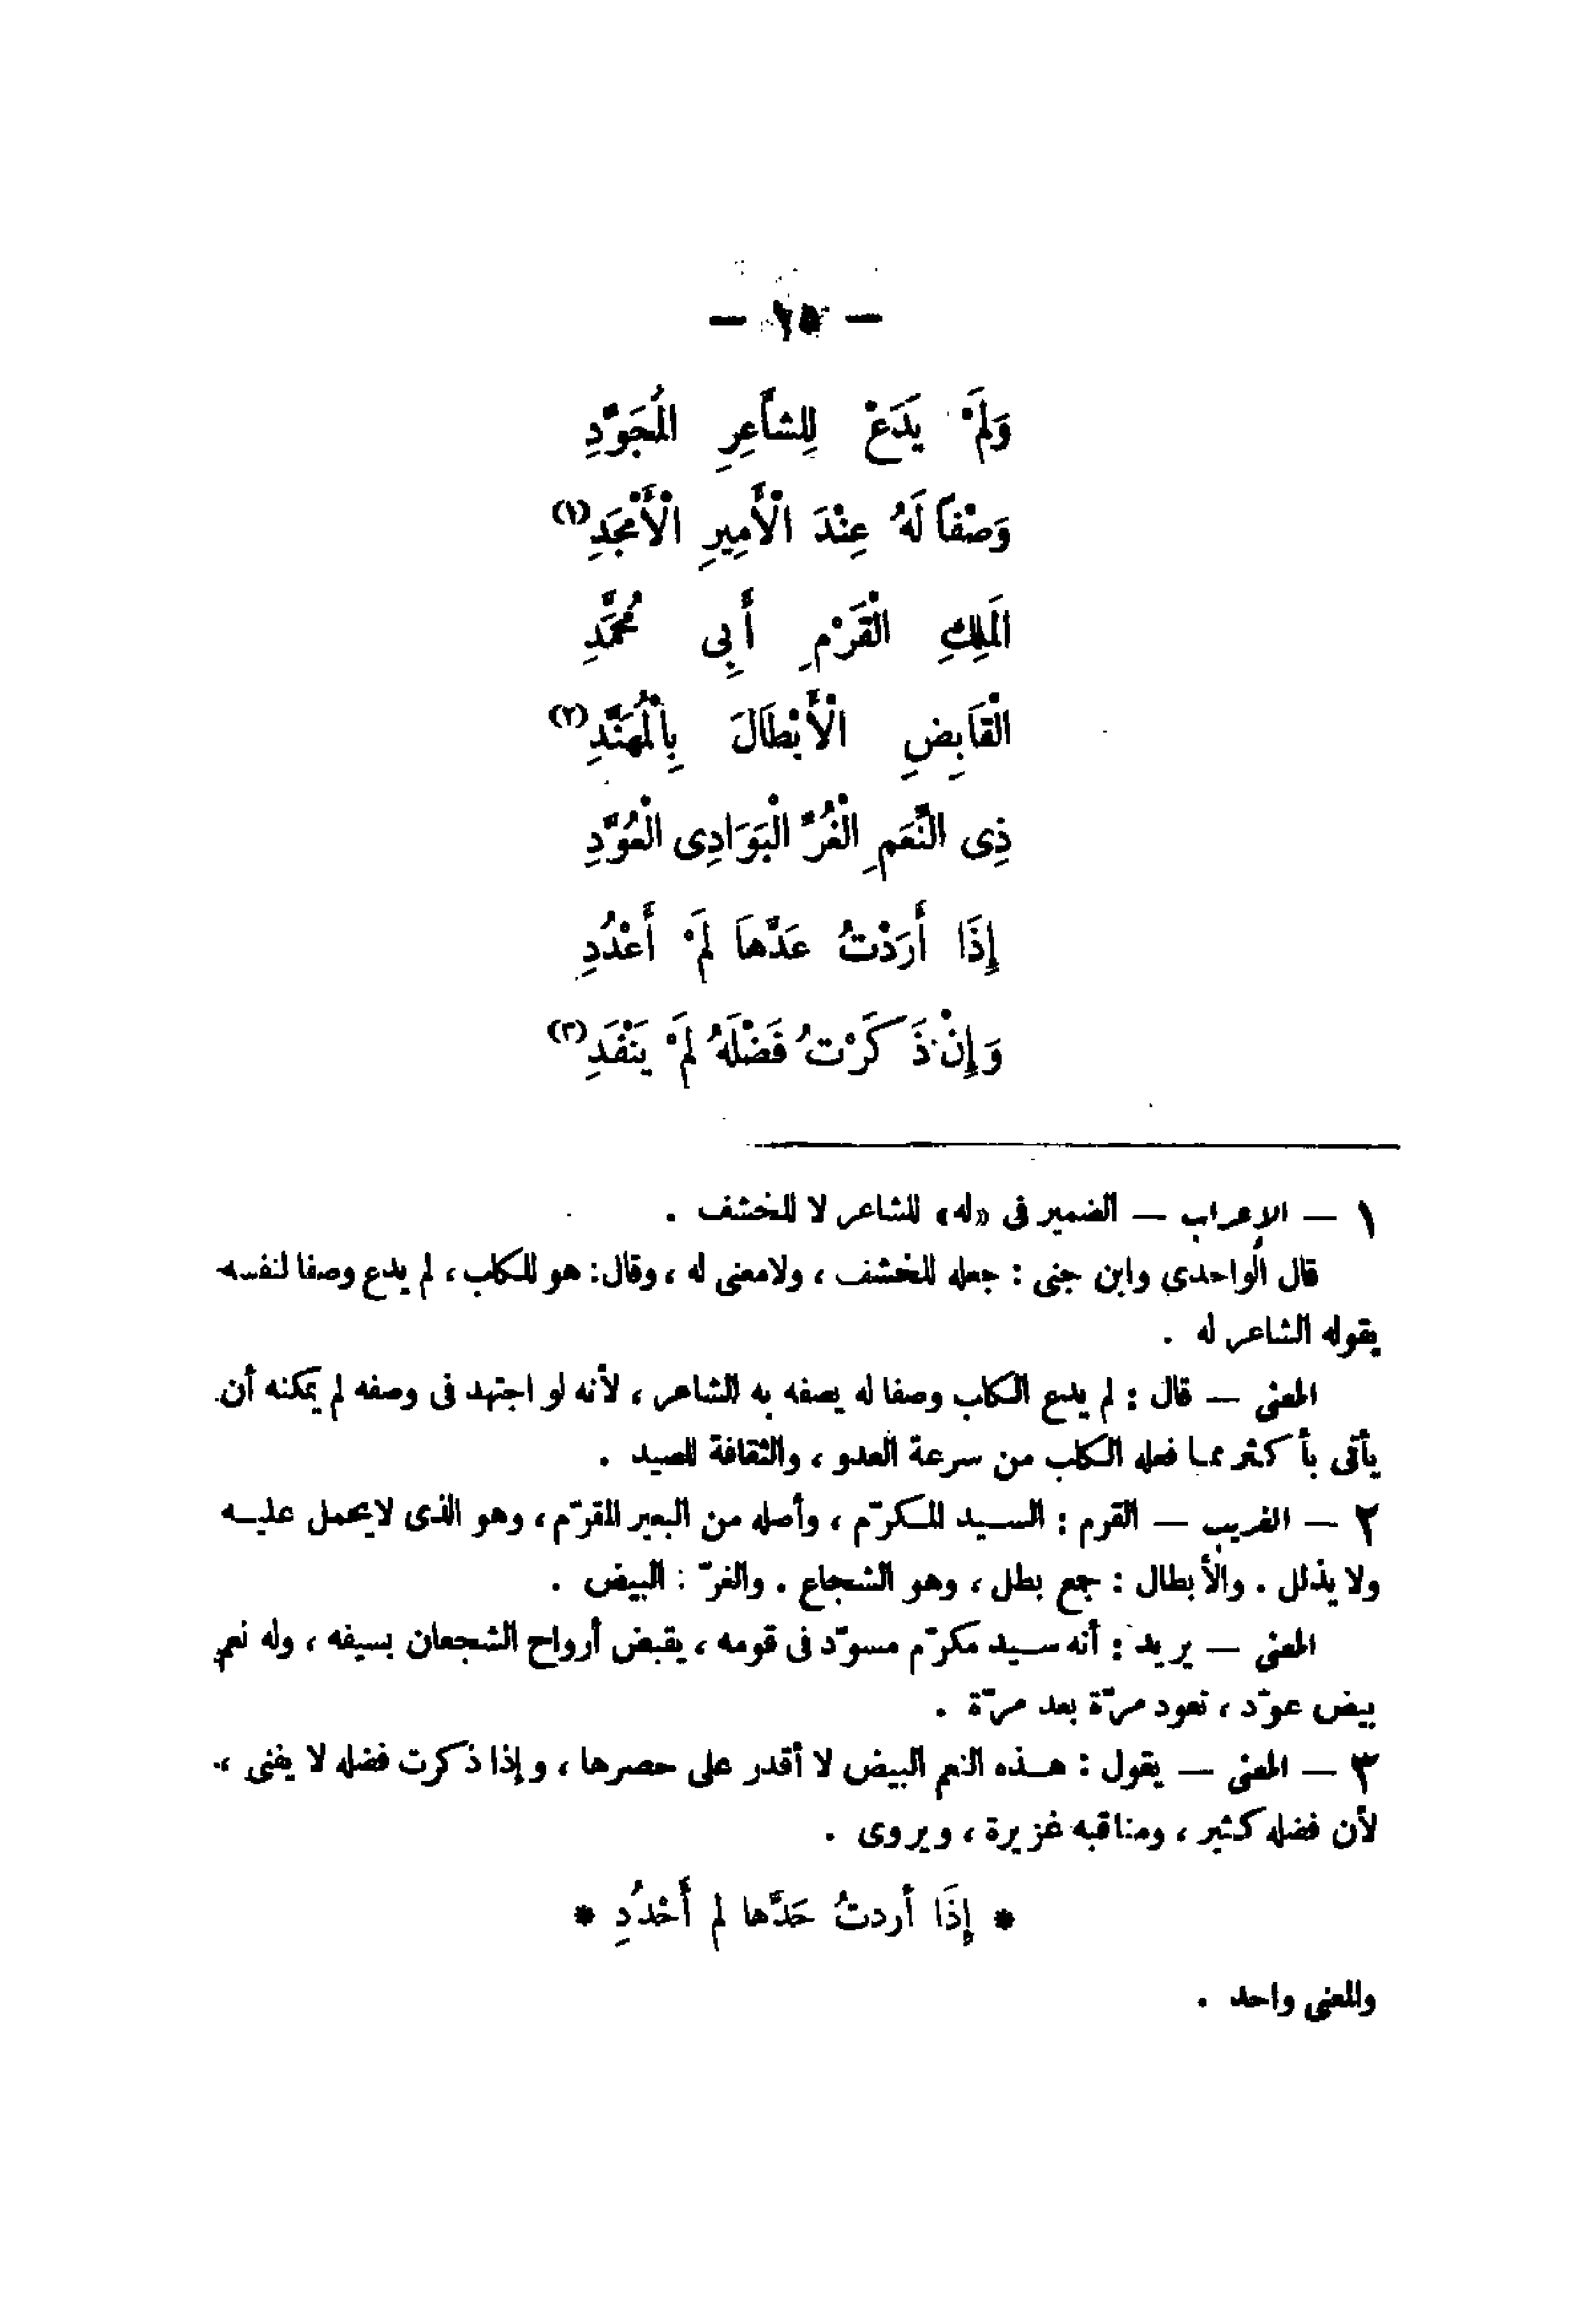 — ١٥ —
وَلَمْ يَدَعْ لِلشَّاعِرِ الْمُجَوِّدِ
وَصْفاً لَهُ عِنْدَ الْأَمِيرِ الْأَمْجَدِ(١)
المَلِكِ الْقَرْمِ أَبِى مُحَمَّدِ
الْقَابِضِ الْأَبْطَالَ بِالْمُهَنَّدِ(٢)
ذِى النِّعَمِ الْغُرِّ الْبَوَادِى الْعُوَّدِ
إِذَا أَرَدْتُ عَدَّهَا لَمْ أَعْدُدِ
وَإِنْ ذَكَرْتُ فَضْلَهُ لَمْ يَنْفَدِ(٣)
١ — الإعراب — الضمير فى «له» للشاعر لا للخشف .
قال الواحدى وابن جنى : جعله للخشف ، ولامعنى له ، وقال: هو للكلب ، لم يدع وصفا لنفسه
يقوله الشاعر له .
المعنى — قال : لم يدع الكلب وصفا له يصفه به الشاعر ، لأنه لو اجتهد فى وصفه لم يمكنه أن
يأتى بأكثر مما فعله الكلب من سرعة العدو ، والثقافة للصيد .
٢ — الغريب — القرم : السيد المكرّم ، وأصله من البعير المقرّم ، وهو الذى لايحمل عليه
ولا يذلل . والأبطال : جمع بطل ، وهو الشجاع . والغرّ : البيض .
المعنى — يريد : أنه سيد مكرّم مسوّد فى قومه ، يقبض أرواح الشجعان بسيفه ، وله نعم
بيض عوّد ، تعود مرّة بعد مرّة .
٣ — المعنى — يقول : هذه النعم البيض لا أقدر على حصرها ، وإذا ذكرت فضله لا يفنى ،
لأن فضله كثير ، ومناقبه غزيرة ، ويروى .
* إِذَا أردتُ حَدَّها لم أَحْدُدِ *
والمعنى واحد .